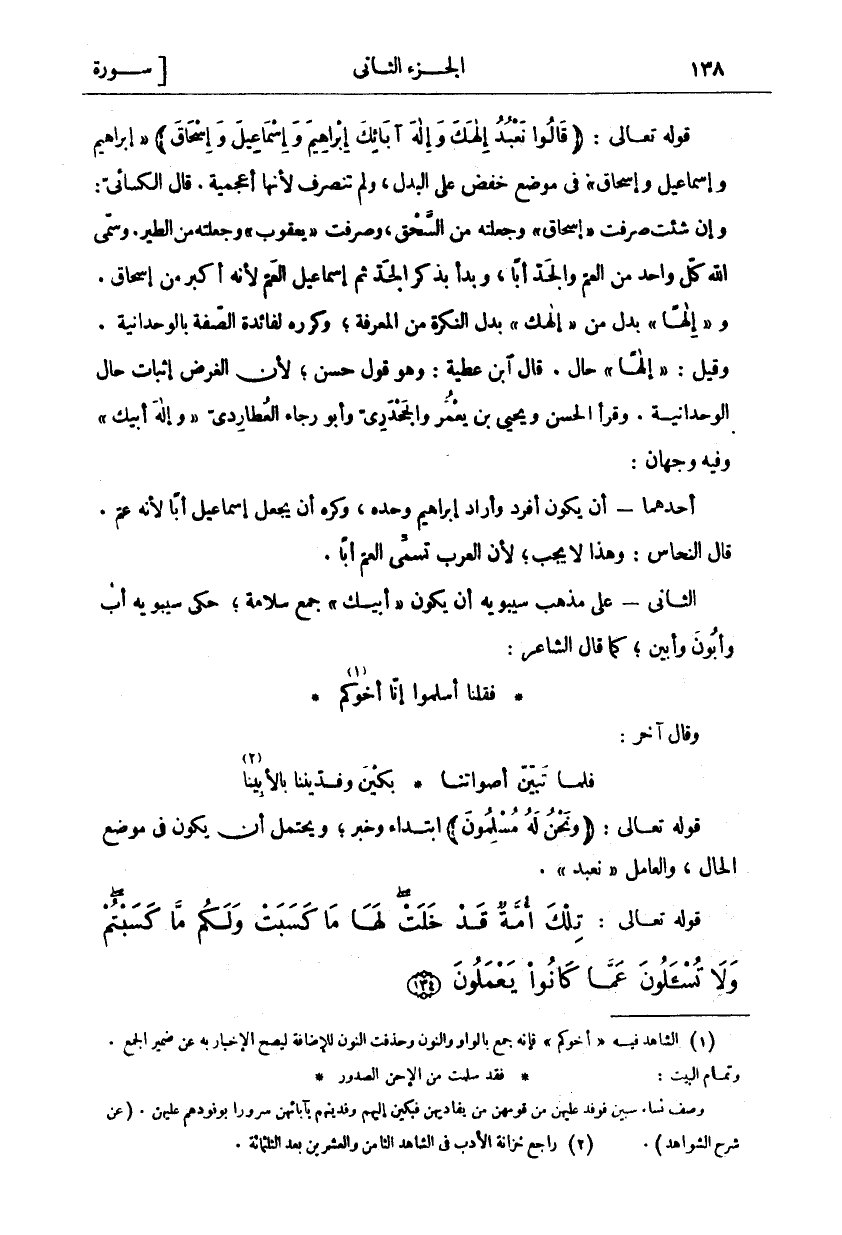 ١٣٨ الجـزء الثـانى [ ســورة
قوله تعـالى : ﴿ قَالُوا نَعْبُدُ إِلٰهَكَ وَ إِلٰهَ آبَائِكَ إِبْرَاهِيمَ وَ إِسْمَاعِيلَ وَ إِسْحَاقَ ﴾ « إبراهيم
و إسماعيل و إسحاق» فى موضع خفض على البدل ، ولم تنصرف لأنها أعجمية . قال الكسائىّ :
و إن شئت صرفت «إسحاق» وجعلته من السَّحْق ، وصرفت «يعقوب» وجعلته من الطير . وسمّى
الله كلّ واحد من العم والجدّ أبًا ، و بدأ بذكر الجدّ ثم إسماعيل العمّ لأنه أكبر من إسحاق .
و « إِلٰهًـا » بدل من « إلٰهك » بدل النكرة من المعرفة ؛ وكرره لفائدة الصّفة بالوحدانية .
وقيل : « إِلٰهًـا » حال . قال آبن عطية : وهو قول حسن ؛ لأن الغرض إثبات حال
الوحدانيـة . وقرأ الحسن و يحيى بن يعْمُر والجَحْدَرِىّ وأبو رجاء العُطارِدىّ « و إلٰهَ أبيك »
وفيه وجهان :
أحدهما — أن يكون أفرد وأراد إبراهيم وحده ، وكره أن يجعل إسماعيل أبًا لأنه عمّ .
قال النحاس : وهذا لا يجب ؛ لأن العرب تسمّى العم أبًا .
الثـانى — على مذهب سيبويه أن يكون « أبيـك » جمع سلامة ؛ حكى سيبويه أبْ
وأَبُونَ وأبين ؛ كما قال الشاعر :
* فقلنا أسلموا إنّا أخوكم (١) *
وقال آخر :
فلمـا تَبيّنّ أصواتنـا * بكيْنَ وفـدّيننا بالأبِينَا (٢)
قوله تعـالى : ﴿ وَنَحْنُ لَهُ مُسْلِمُونَ ﴾ ابتـداء وخبر ؛ و يحتمل أن يكون فى موضع
الحال ، والعامل « نعبد » .
قوله تعـالى : تِلْكَ أُمَّةٌ قَـدْ خَلَتْ ۖ لَهَـا مَا كَسَبَتْ وَلَـكُم مَّا كَسَبْتُمْ ۖ
وَلَا تُسْـَٔلُونَ عَمَّـا كَانُواْ يَعْمَلُونَ ١٣٤
(١) الشاهد فيـه « أخوكم » فإنه جمع بالواو والنون وحذفت النون للإضافة ليصح الإخبار به عن ضمير الجمع .
وتمـام البيت : * فقد سلمت من الإحن الصدور *
وصف نساء سبين فوفد عليهن من قومهن من يفاديهن فبكين إليهم وفدينهم بآبائهن سرورا بوفودهم عليهن . (عن
شرح الشواهد) . (٢) راجع خزانة الأدب فى الشاهد الثامن والعشرين بعد الثلثمائة .